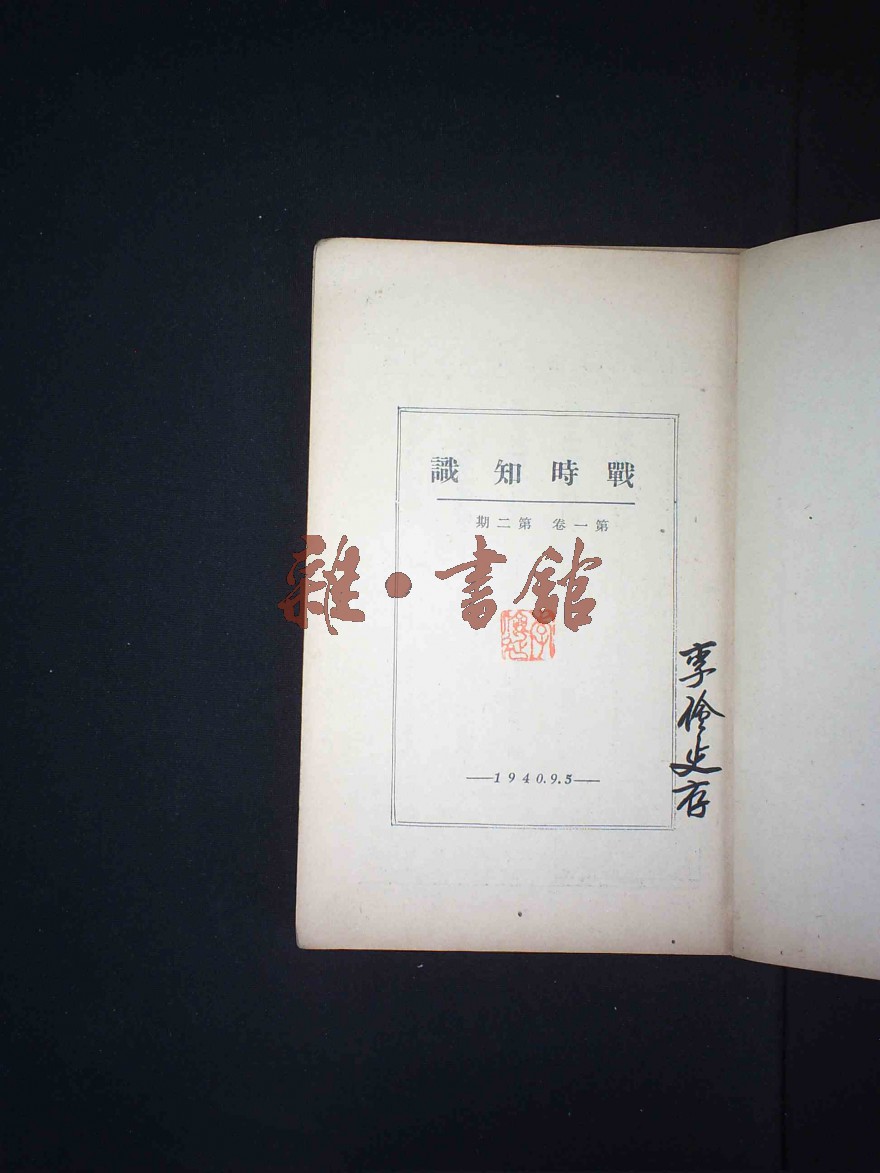 戰時知識
第一卷 第二期
雜·書館
—1940.9.5—
李
史存